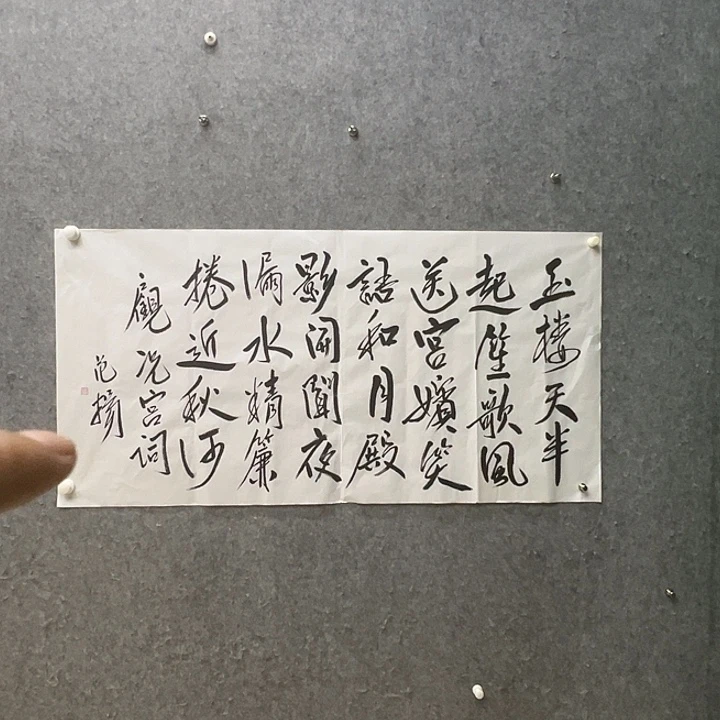 玉樓天半
起笙歌風
送宮嬪笑
語和月殿
影開聞夜
漏水精簾
捲近秋河
顧况宮詞
范揚